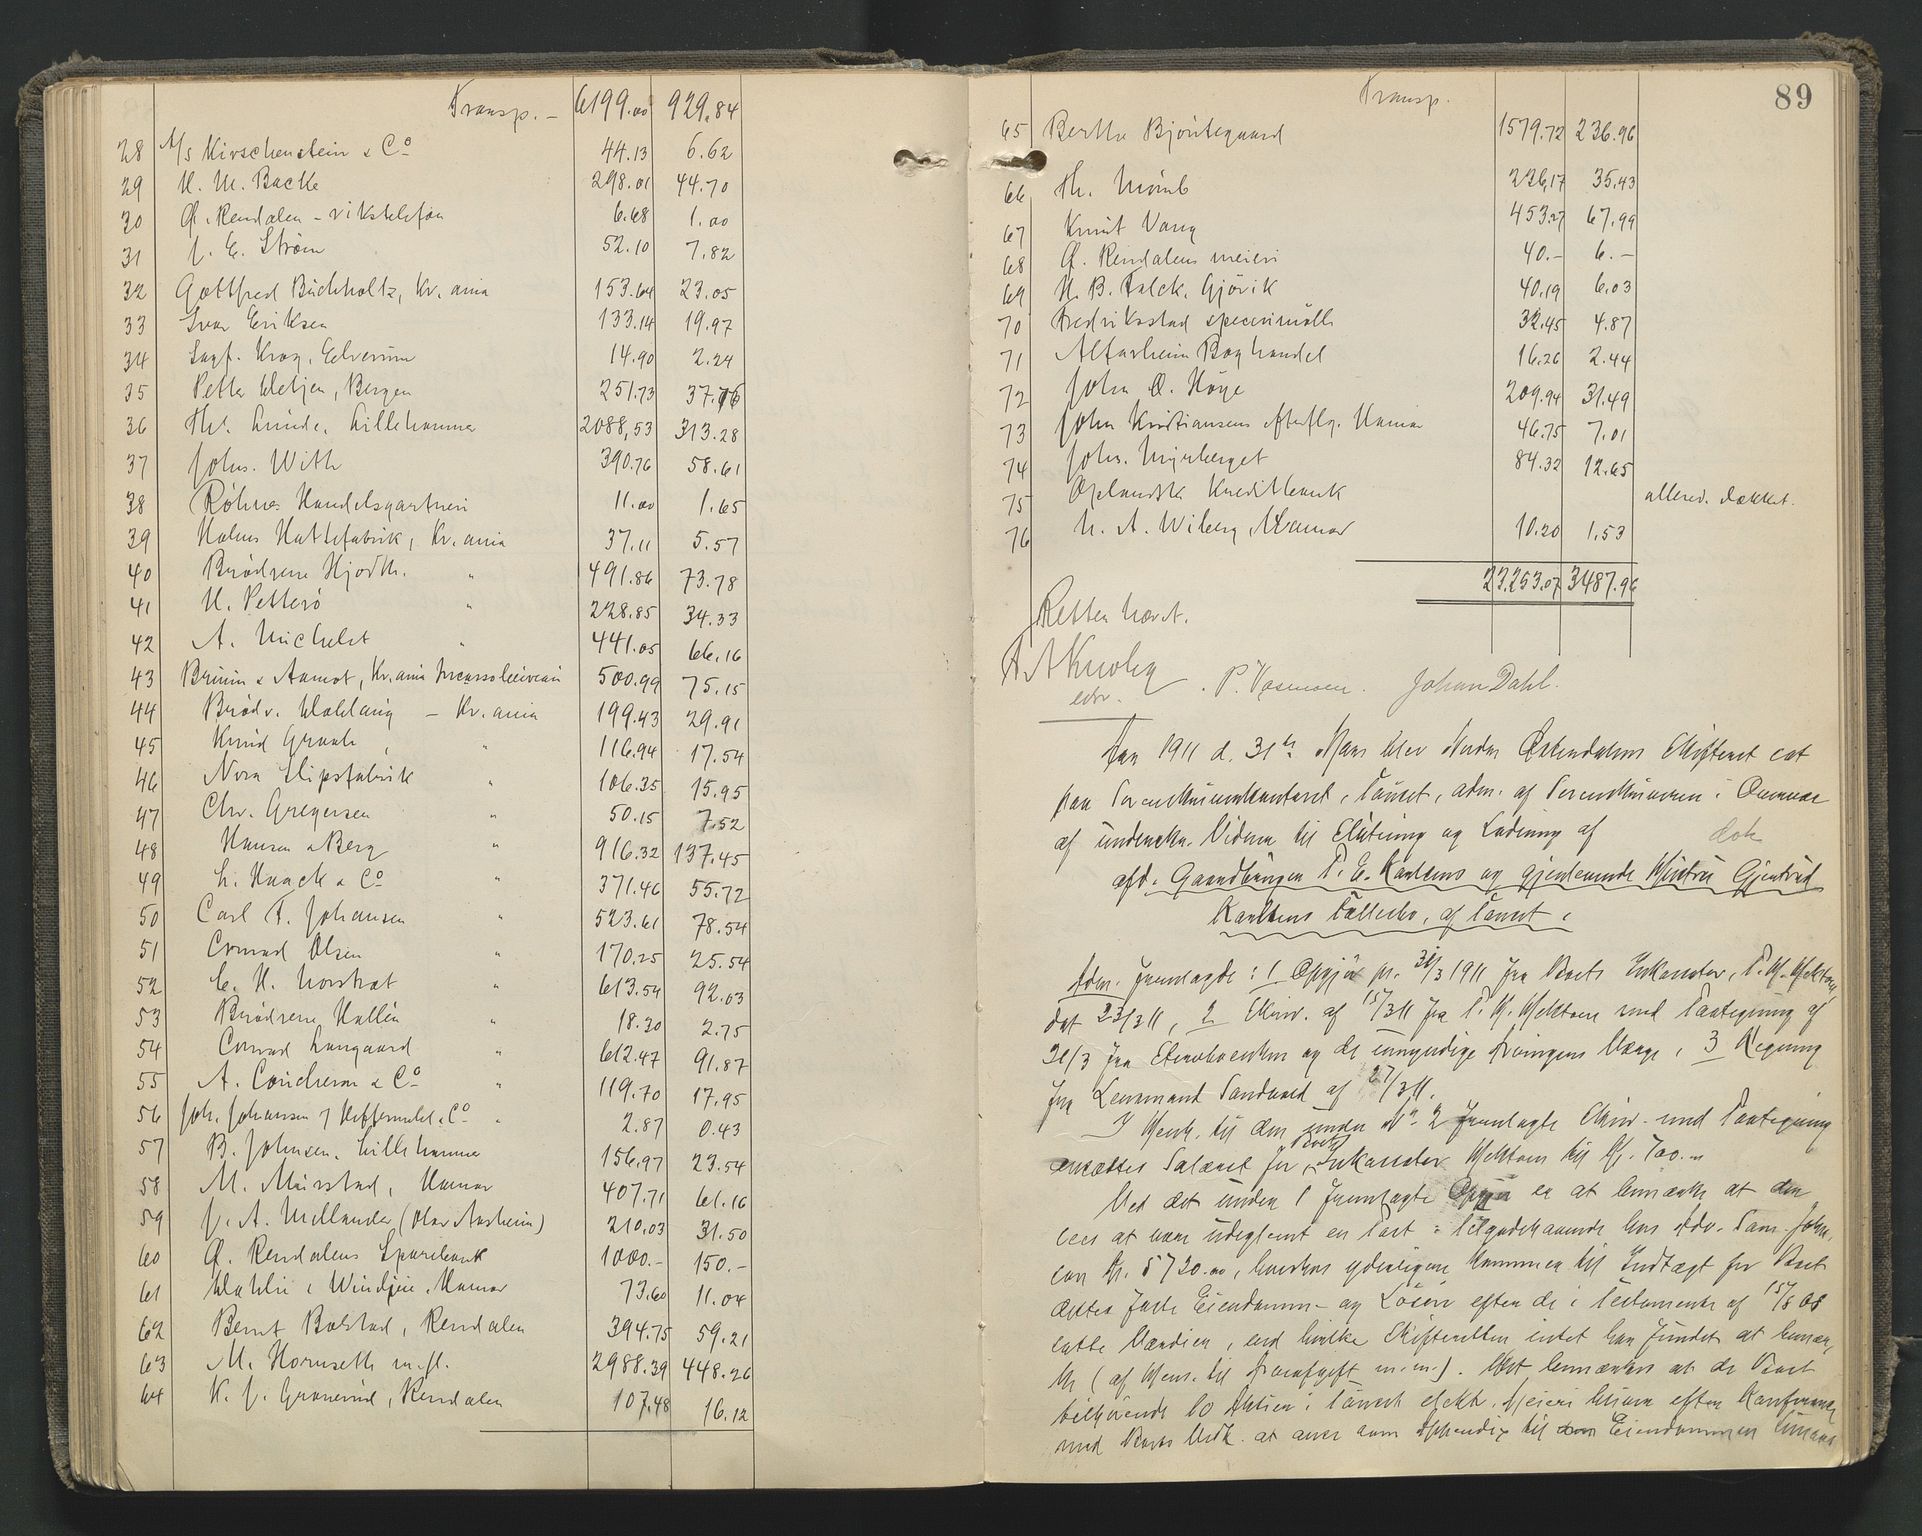 Transp. – 6199.00 929.84
28 A/s Kirschenstein & Co 44.13 6.62
29 H. M. Backe 298.01 44.70
30 Ø. Rendalen - rikstelefon 6.68 1.00
31 J. E. Strøm 52.10 7.82
32 Gottfred Buchholtz, Kr.ania 153.64 23.05
33 Ivar Eriksen 133.14 19.97
34 Sagf. Krog, Elverum 14.90 2.24
35 Petter Wetjen, Bergen 251.73 37.76
36 Th. Lunde, Lillehammer 2088,53 313.28
37 Johs. With 390.76 58.61
38 Røhnes Handelsgartneri 11.00 1.65
39 Halens Hattefabrik, Kr.ania 37.11 5.57
40 Brødrene Hjorth. " 491.86 73.78
41 H. Petterø " 228.85 34.33
42 A. Michelet " 441.05 66.16
43 Bruun & Aamot, Kr.ania 500.99 75.15
44 Brødr. – Kr.ania 199.43 29.91
45 Knud Graah, " 116.94 17.54
46 Nora Slipsfabrik " 106.35 15.95
47 Chr. Gregersen " 50.15 7.52
48 Hansen & Berg " 916.32 137.45
49 L. Haack & Co " 371.46 55.72
50 Carl F. Johansen " 523.61 78.54
51 Conrad Olsen " 170.25 25.54
52 C. H. Norstrøt " 613.54 92.03
53 Brødrene Hallén " 18.30 2.75
54 Conrad Langaard " 612.47 91.87
55 A. & Co " 119.70 17.95
56 Joh. Johansen & Co " 2.87 0.43
57 B. Johnsen, Lillehammer 156.97 23.54
58 M. Mørstad, Hamar 407.71 61.16
59 J. A. Mellander (Olav Aasheim) 210.03 31.50
60 Ø. Rendalens Sparebank 1000.- 150.-
61 Wahlie & Windjue, Hamar 73.60 11.04
62 Bernt Bolstad, Rendalen 394.75 59.21
63 M. Hornseth m.fl. 2988.39 448.26
64 K. J. Granerud, Rendalen 107.48 16.12
89
Transp.
65 Berthe Bjøntegaard 1579.72 236.96
66 Th. 236,17 35.43
67 Knut Vang 453.27 67.99
68 Ø. Rendalens meieri 40.– 6.–
69 H. B. Falck, Gjøvik 40.19 6.03
70 Fredriksstad specerimølle 32.45 4.87
71 Altarheim Boghandel 16.26 2.44
72 John O. Høye 209.94 31.49
73 John Kristiansens efterflg. Hamar 46.75 7.01
74 Johs. Myrberget 84.32 12.65
75 Oplandsk Kreditbank allered. dækket.
76 N. A. Wiberg, Hamar 10.20 1,53
23,253.07 3487.96
Retten hævet.
Johan Dahl.
Aar 1911 d. 31te Mars blev Nordre Østerdalens Skifteret sat
paa Sorenskriverkontoret, Tønset, adm. af Sorenskriveren i Overvær
af underskr. Vidner til Slutning og Lodning af
afd. Gaardbruger P. E. Karlsens og gjenlevende Hustru Gjertrud
Karlsens Fællesbo, af Tønset.
Adm. fremlagde: 1 Opgjør pr. 31/3 1911 fra Boets Inkassator,
dat 23/3 11, 2 Skriv. af 15/3 11 fra med Paategning af
31/3 fra og de umyndige Arvingers Værge, 3 Regning
fra Lensmand Sandvold af 27/3 11.
I Henh. til den under No 2 fremlagte Skriv. med Paategning
ansættes Salæret for Boets Inkassator til Kr. 700.-
Ved det under 1 fremlagte Opgjør er at bemærke at den
sees at være udeglemt en Post: Tilgodehavende hos
Kr. 5720.00, hvorhos yderligere kommer til Indtægt for Boet
dettes faste Eiendomme og Løsøre efter de i Testamente af 15/8 08
satte Værdier, ved hvilke Skifteretten intet har fundet at bemær,
ke (af Hens. til Arveafgift m.m.). Det bemærkes at de Boet
tilhørende 10 Aktier i Tønset Meieri efter
med Boets at anse som Appendix til Eiendommen